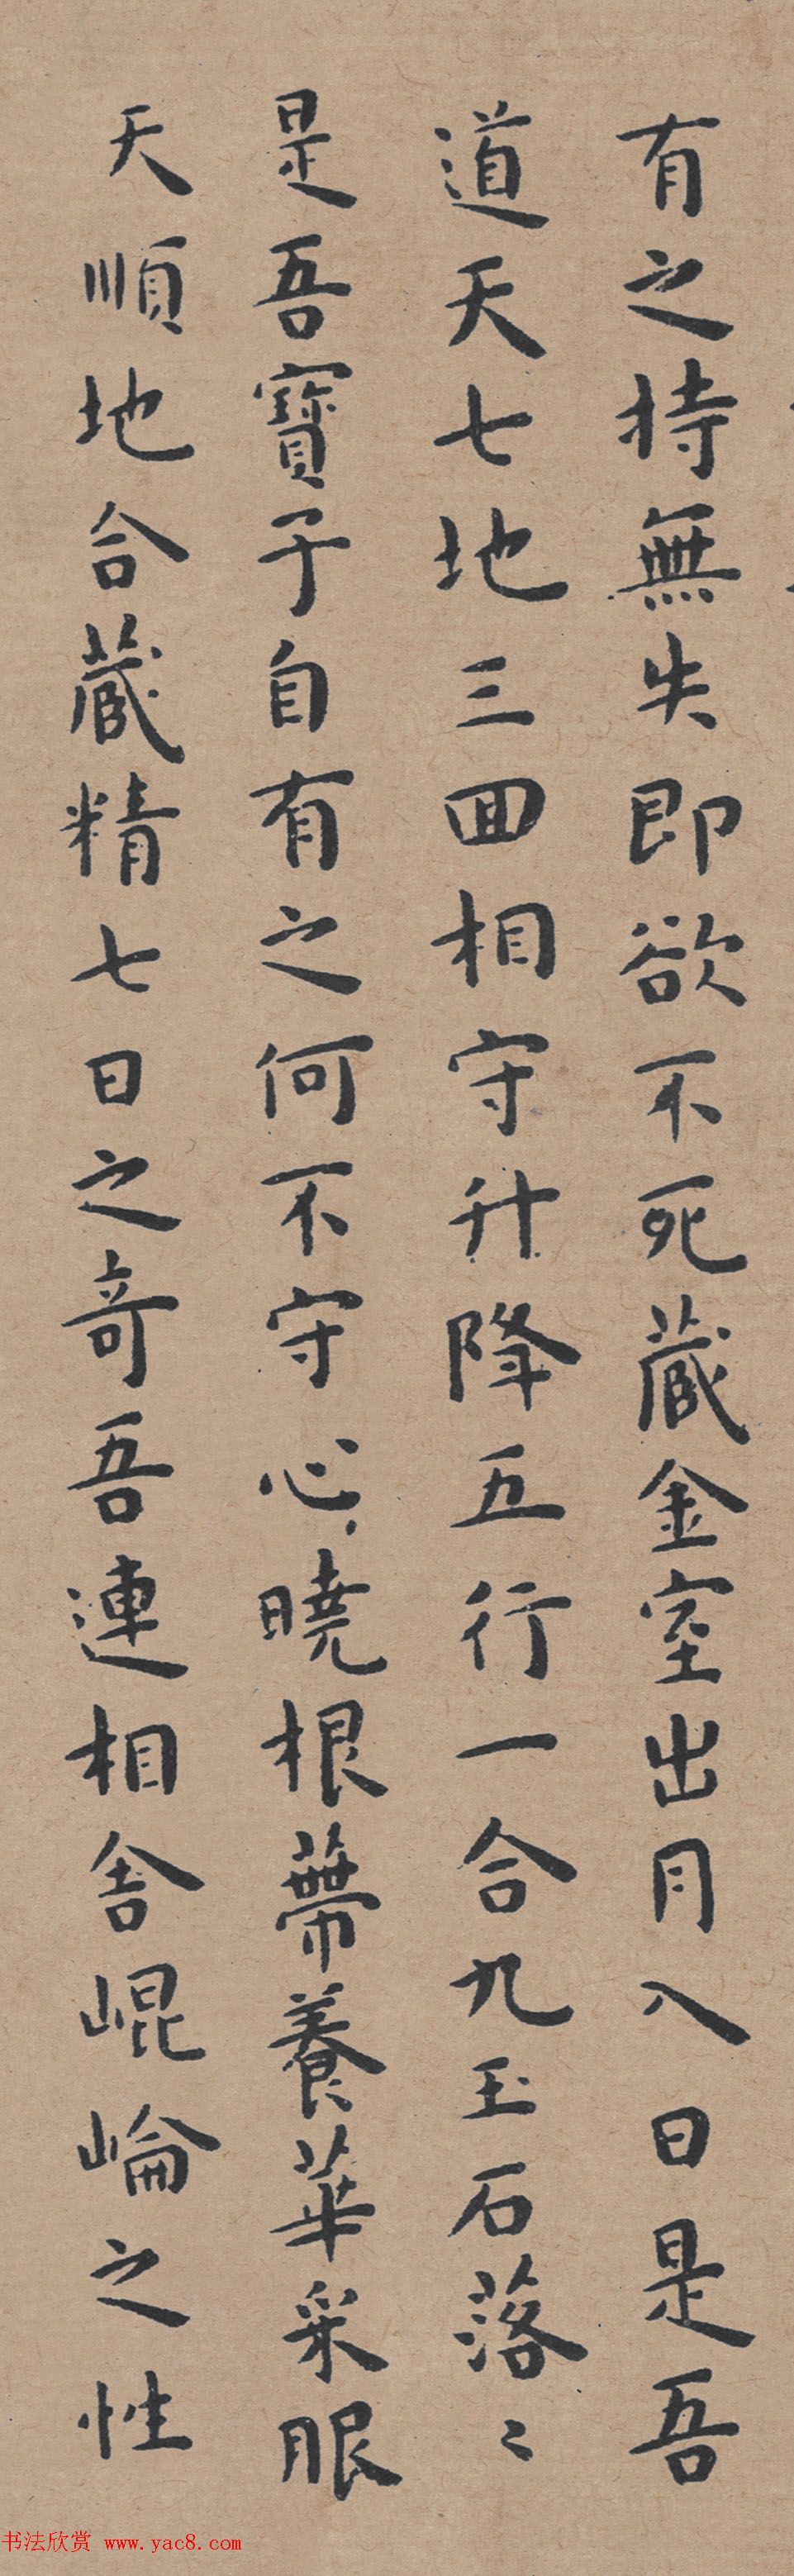 有之持無失即欲不死藏金室出月入日是吾
道天七地三回相守升降五行一合九玉石落〻
是吾寶子自有之何不守心曉根蒂養華采眼
天順地合藏精七日之奇吾連相舍崐崘之性
书法欣赏 www.yac8.com